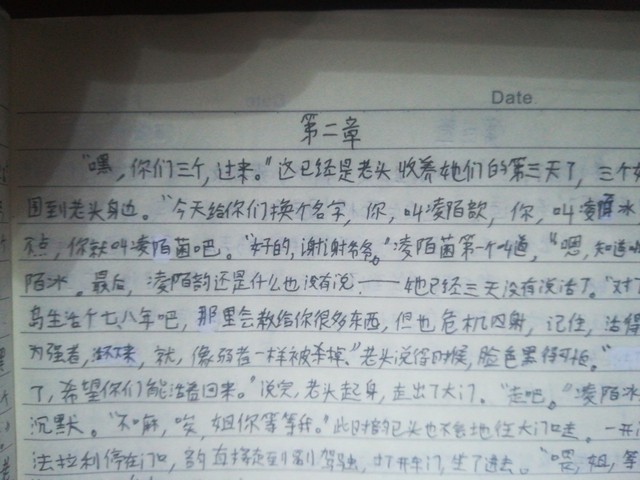 Date
第二章
“嘿,你们三个,过来。”这已经是老头收养她们的第三天了,三个女
围到老头身边。“今天给你们换个名字,你,叫凌陌歆,你,叫凌陌冰
不点,你就叫凌陌茵吧。”“好的,谢谢爷爷。”凌陌茵第一个叫道,“嗯,知道
陌冰。最后,凌陌韵还是什么也没有说——她已经三天没有说话了。“对了
岛生活个七、八年吧,那里会教给你很多东西,但也危机四射,记住,活得
为强者,就,像弱者一样被杀掉、”老头说得时候,脸色黑得可怕。“
了,希望你们能活着回来。”说完,老头起身,走出了大门。“走吧。”凌陌冰
沉默。“不嘛,唉,姐你等等我。”此时韵已头也不回地往大门口走。一开
法拉利停在门口,韵直接走到副驾驶,打开车门,坐了进去。“喂,姐,等